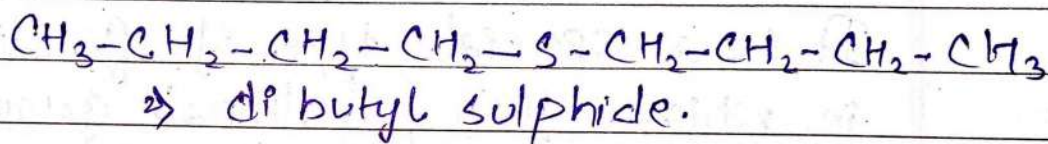 CH₃-CH₂-CH₂-CH₂-S-CH₂-CH₂-CH₂-CH₃
⇒ di butyl sulphide.